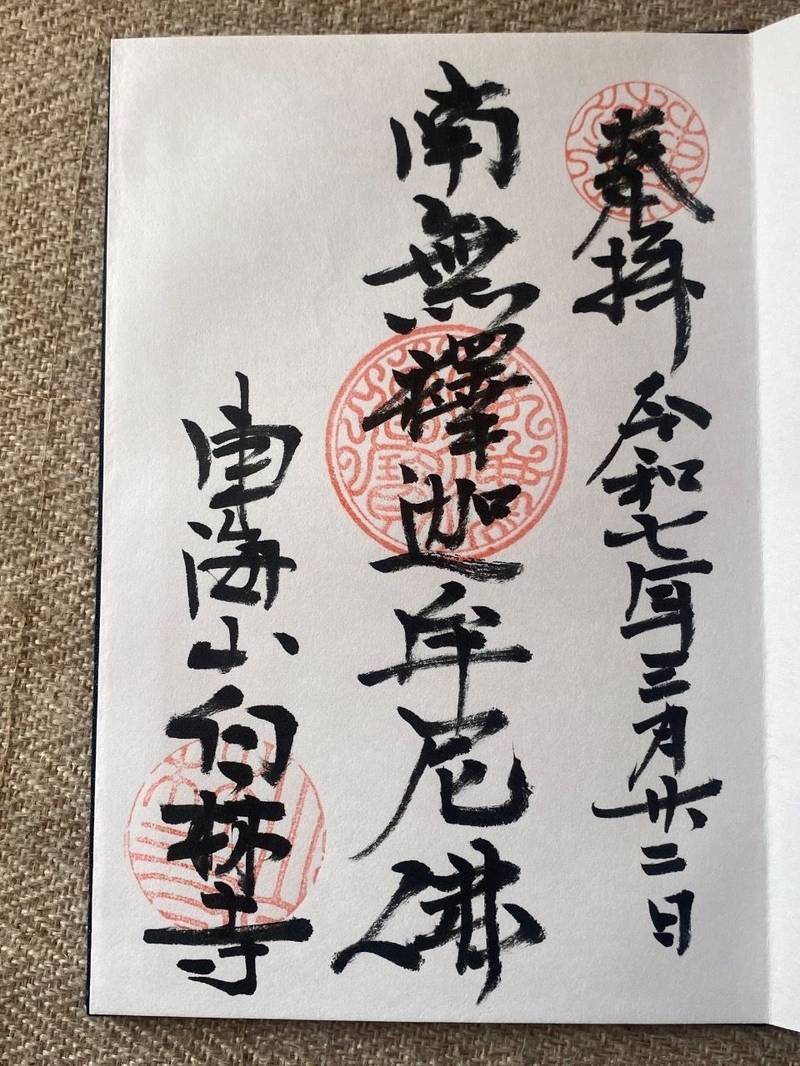 奉拝
令和七年三月廿二日
南無釋迦牟尼佛
南海山白林寺